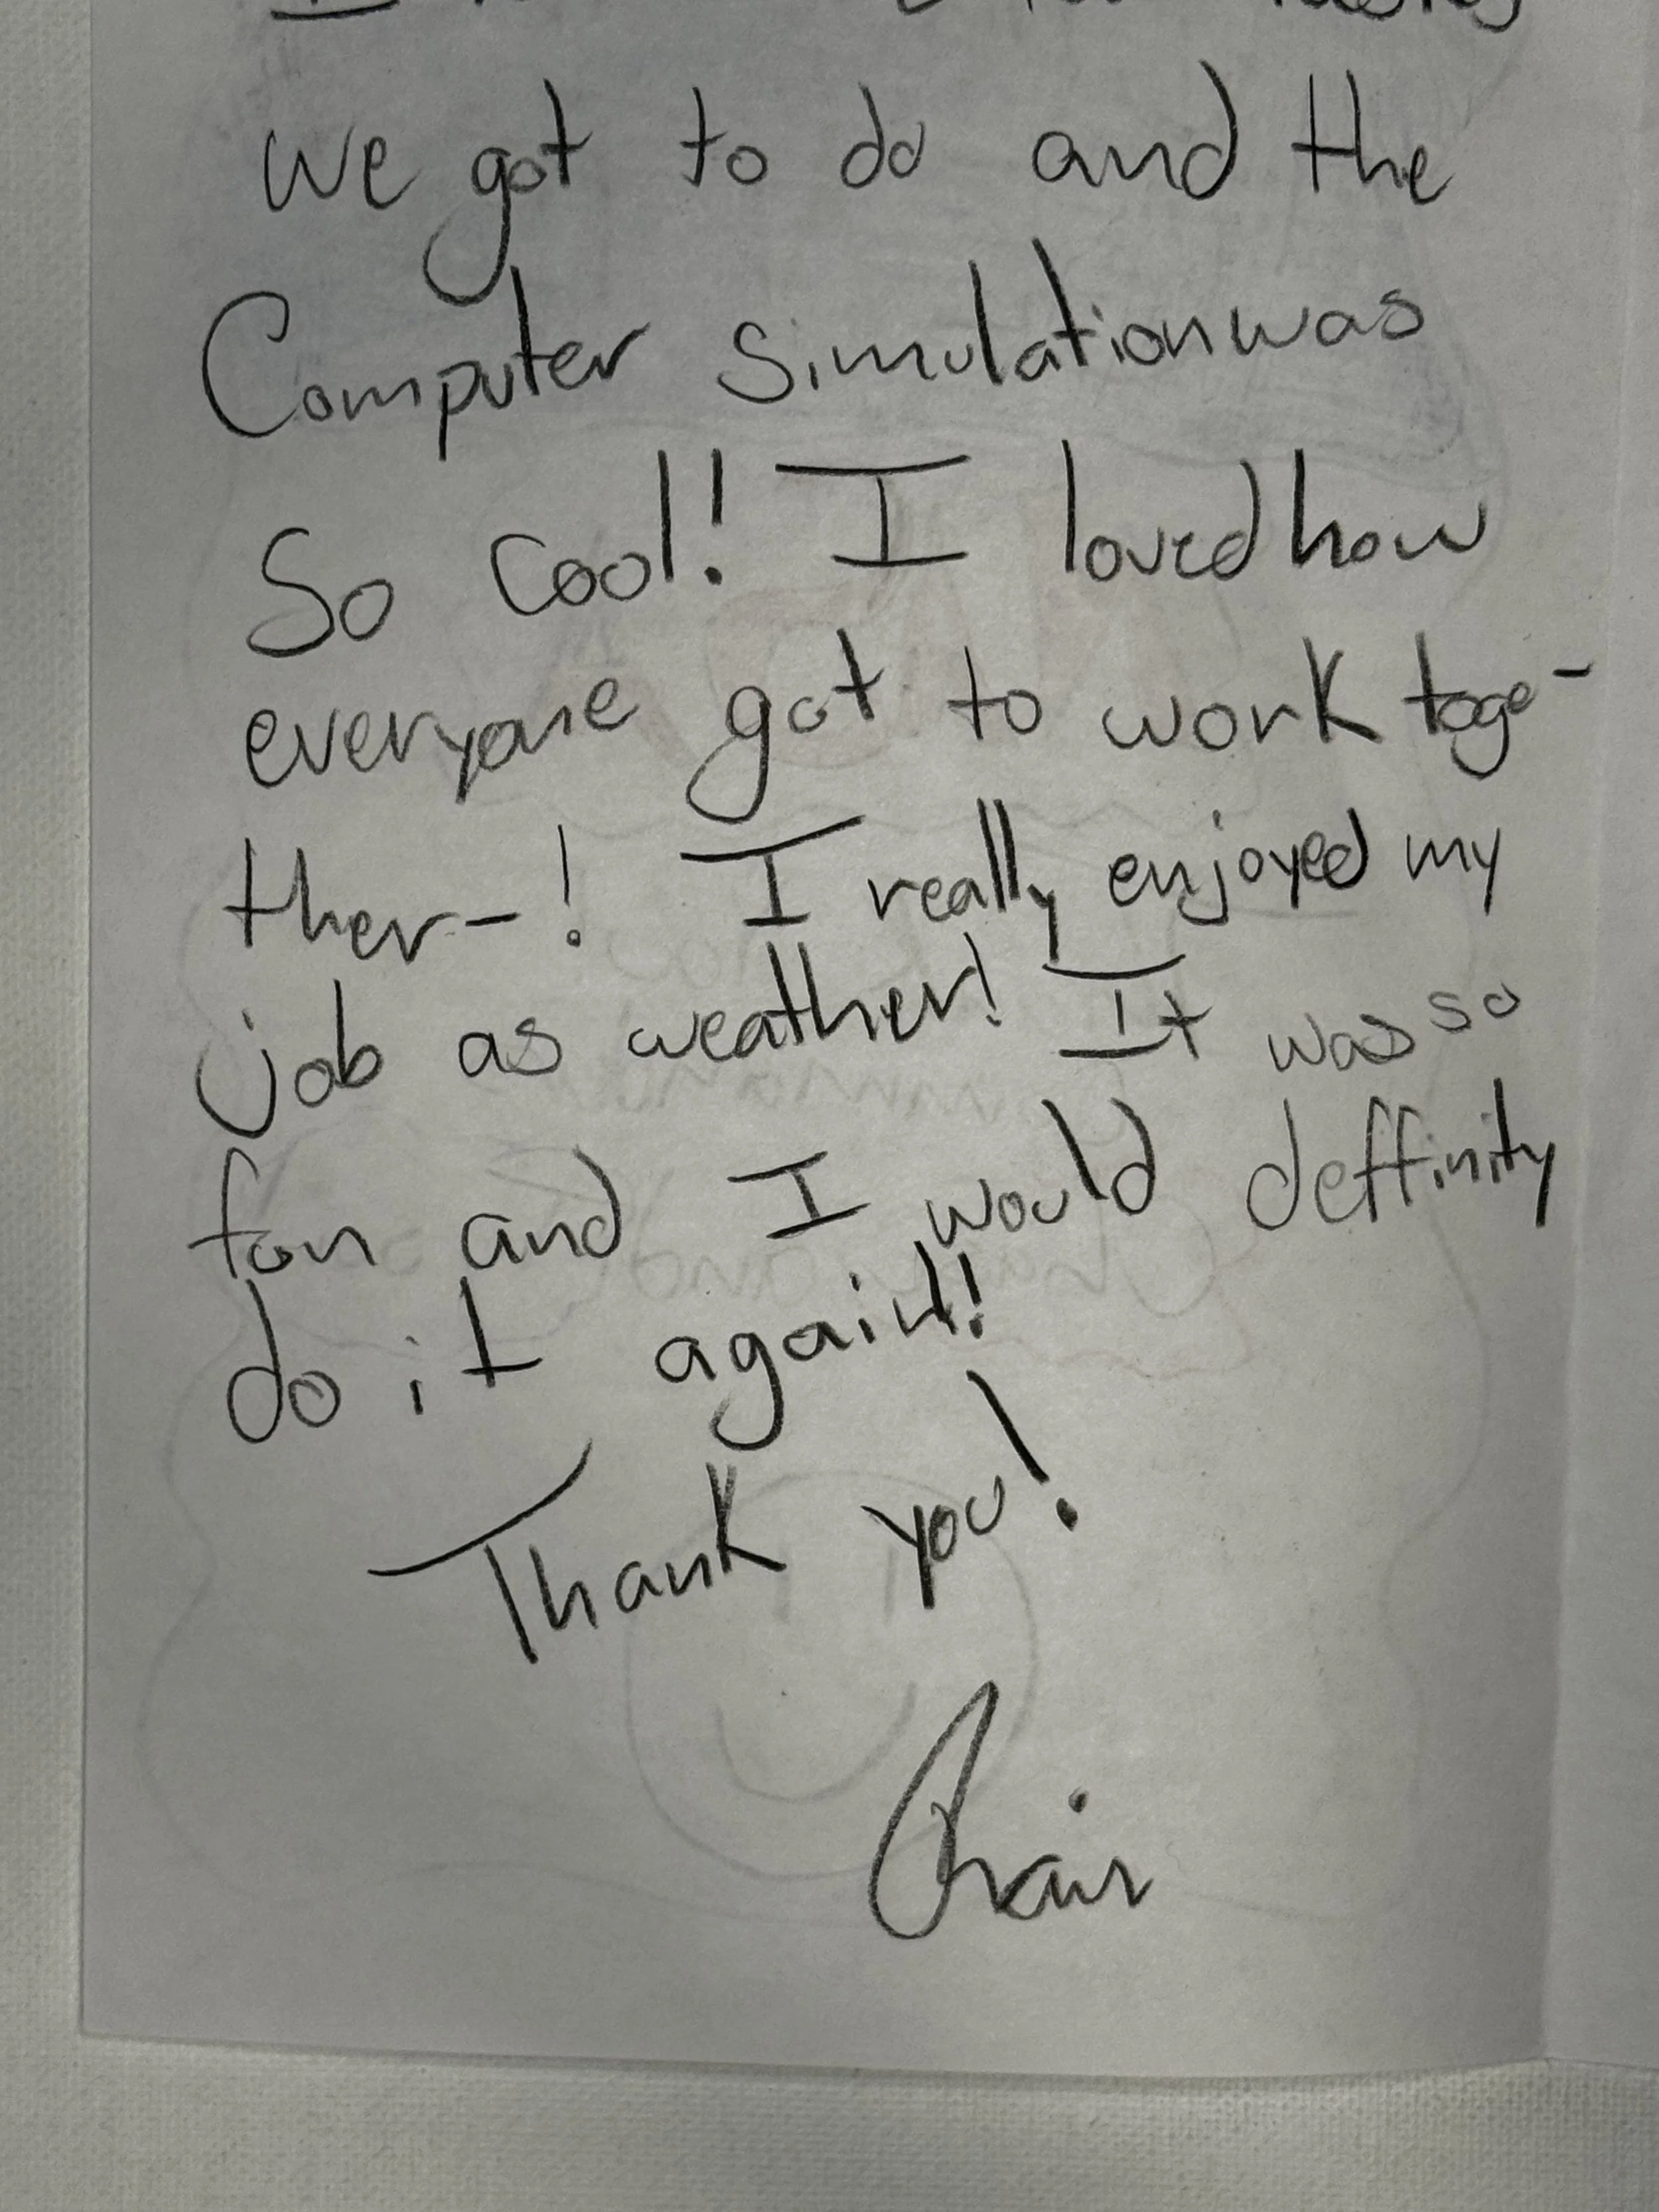 we got to do and the
Computer simulation was
So cool! I loved how
everyone got to work toge-
ther-! I really enjoyed my
job as weather! It was so
fun and I would deffinity
do it again!!
Thank you!